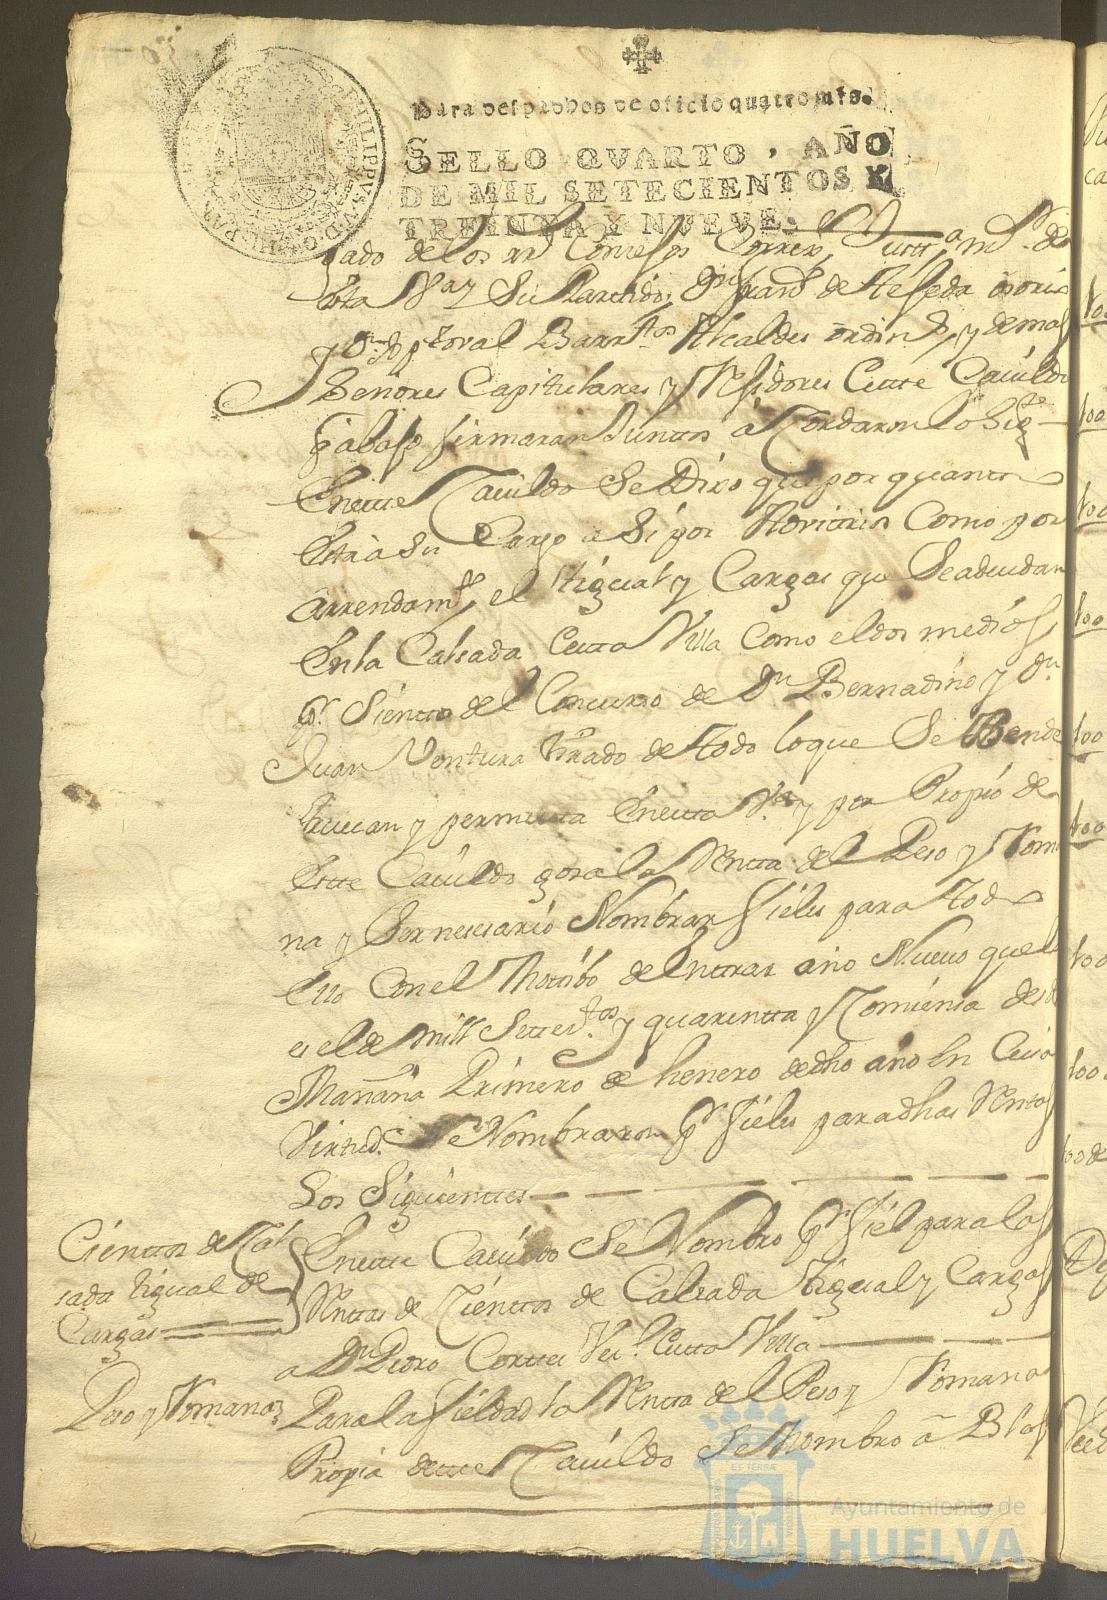 Para despachos de oficio quatro mrs.
SELLO QVARTO, AÑO
DE MIL SETECIENTOS Y
TREINTA Y NUEVE.
PHILIPPVS V D G
gado de los Rs Consejos Correx Justta mr de
esta Va y Su Partido, Dn Franco de
y Dn Barrtos Alcaldes ordins y demas
Señores Capitulares y Rexidores Deste Cavildo
q abajo firmaran Juntos acordaron lo Sigte
Eneste Cavildo Se Dixo que por quanto
Esta a Su Cargo a Si por Como por
Arrendamto el y Cargas que Se adeudan
En la Calsada Desta Villa Como el dos medios
pr Sientos del Concurso de Dn Bernardino y Dn
Juan Ventura de todo lo que Se Bende
truecan y permuta En esta Va y por Propio de
Este Cavildo gosa la Rentta del Peso y Roma
na y Ser nesesario Nombrar fieles para todo
Ello Con el Motibo de Entrar año Nuevo que el
es el de mill Settestos y quarentta y Comiensa desde
Mañana Primero de henero de dho año En Cuia
Virtud Se Nombraron pr fieles para dhas Rentas
Los Siguientes
Cienttos de Cal
sada de
Cargas
Eneste Cavildo Se Nombro pr fiel para las
Rentas de Cienttos de Calsada y Cargas
a Dn Pedro Cortes Veo Desta Villa
Peso y Romana
Para la fieldad la Rentta del Peso y Romana
Propia deste Cavildo Se Nombro a Blas
Ayuntamiento de
HUELVA